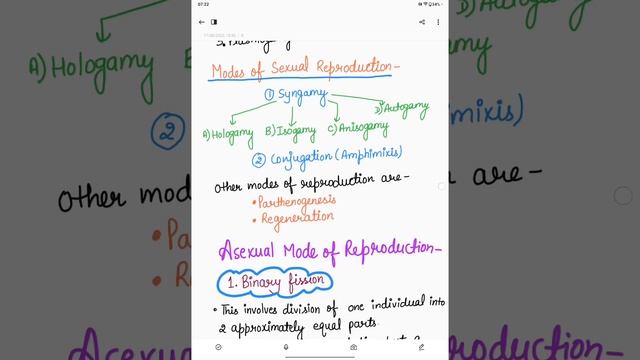 07:22
34%
Modes of Sexual Reproduction-
① Syngamy
D) Autogamy
A) Hologamy B) Isogamy C) Anisogamy
② Conjugation (Amphimixis)
Other modes of reproduction are-
• Parthenogenesis
• Regeneration
Asexual Mode of Reproduction-
1. Binary fission
• This involves division of one individual into
2 approximately equal parts.